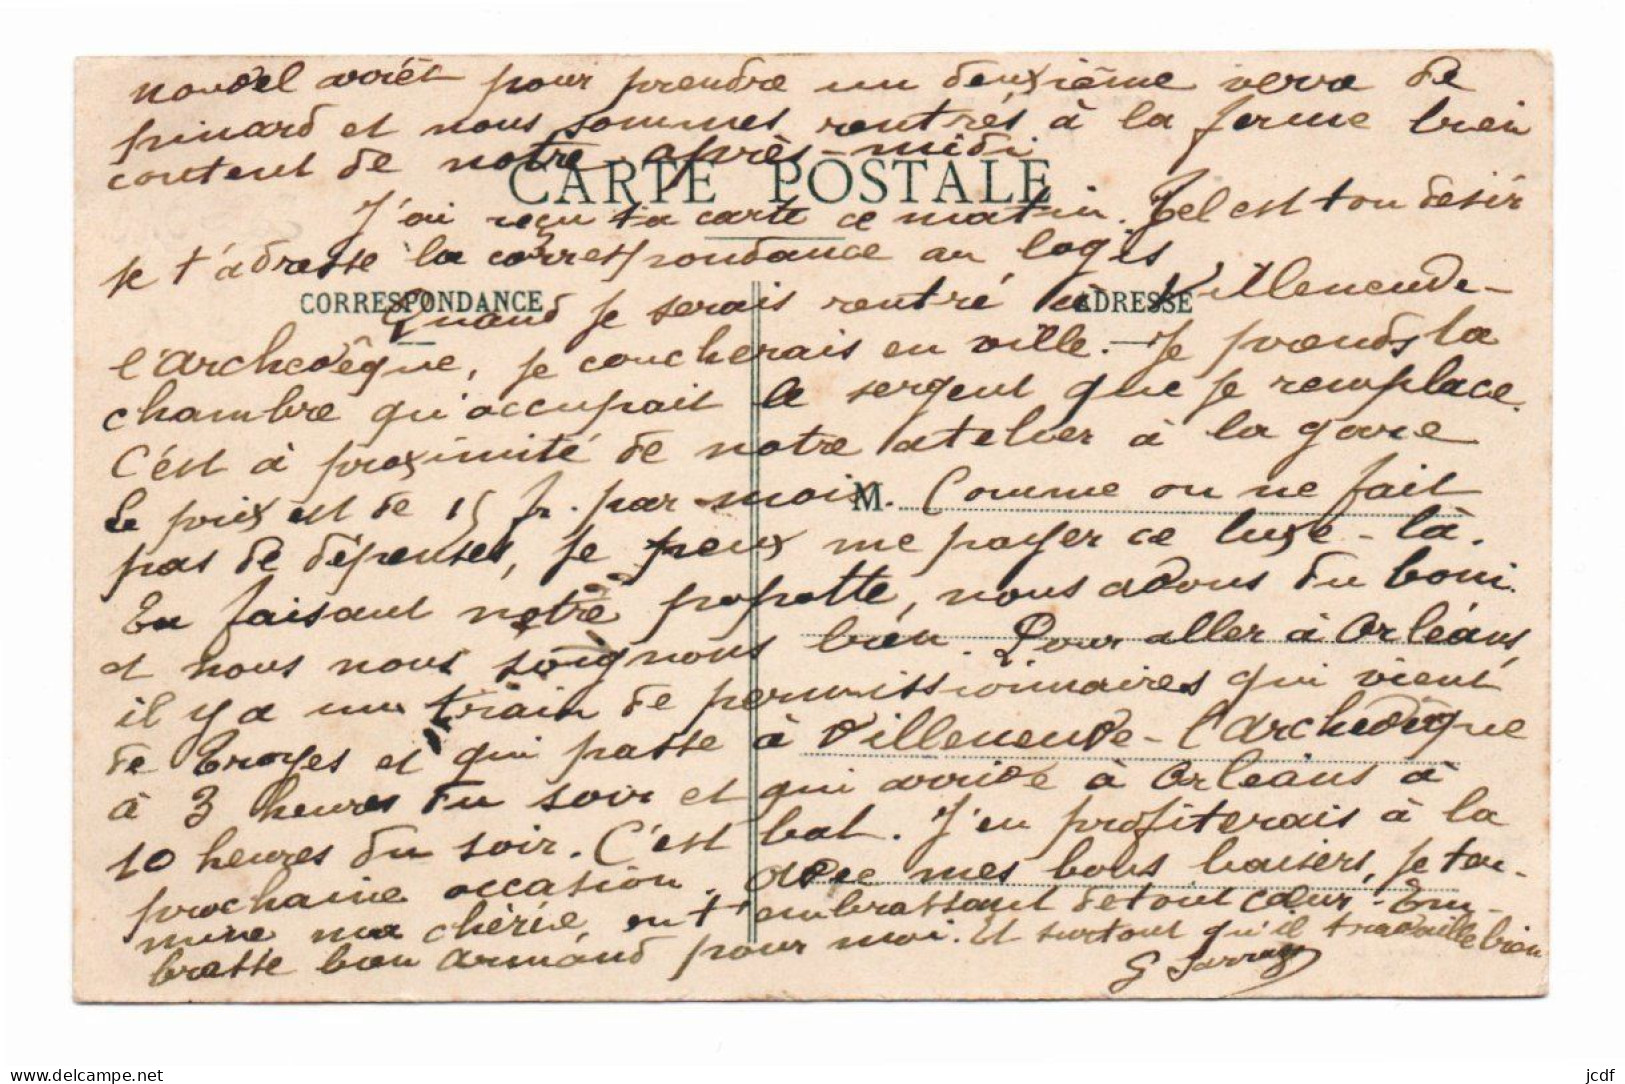 nouvel arrêt pour prendre un deuxième verre de
pinard et nous sommes rentrés à la ferme bien
content de notre après-midi
CARTE POSTALE
J'ai reçu ta carte ce matin. Tel est ton desir
je t'adresse la correspondance au logis
CORRESPONDANCE
ADRESSE
Quand je serais rentré à Villeneuve-
l'archevêque, je coucherais en ville. - Je prends la
chambre qu'occupait le sergent que je remplace.
C'est à proximité de notre atelier à la gare
Le prix est de 15 fr. par mois. Comme on ne fait
M.
pas de dépenses, je peux me payer ce luxe-là.
En faisant notre popotte, nous avons du boni
et nous nous soignons bien. Pour aller à Orléans,
il y a un train de permissionnaires qui vient
de Troyes et qui passe à Villeneuve-l'archevêque
à 3 heures du soir et qui arrive à Orléans à
10 heures du soir. C'est bat. J'en profiterais à la
prochaine occasion. Avec mes bons baisers, je ter-
mine ma chérie en t'embrassant de tout cœur. Em-
brasse bien Armand pour moi. Et surtout qu'il travaille bien
delcampe.net
jcdf